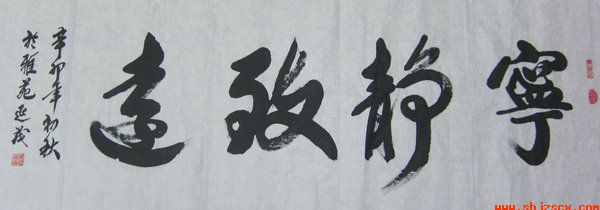 寧静致遠
辛卯年初秋
於雅苑延茂
www.sbjzscx.com